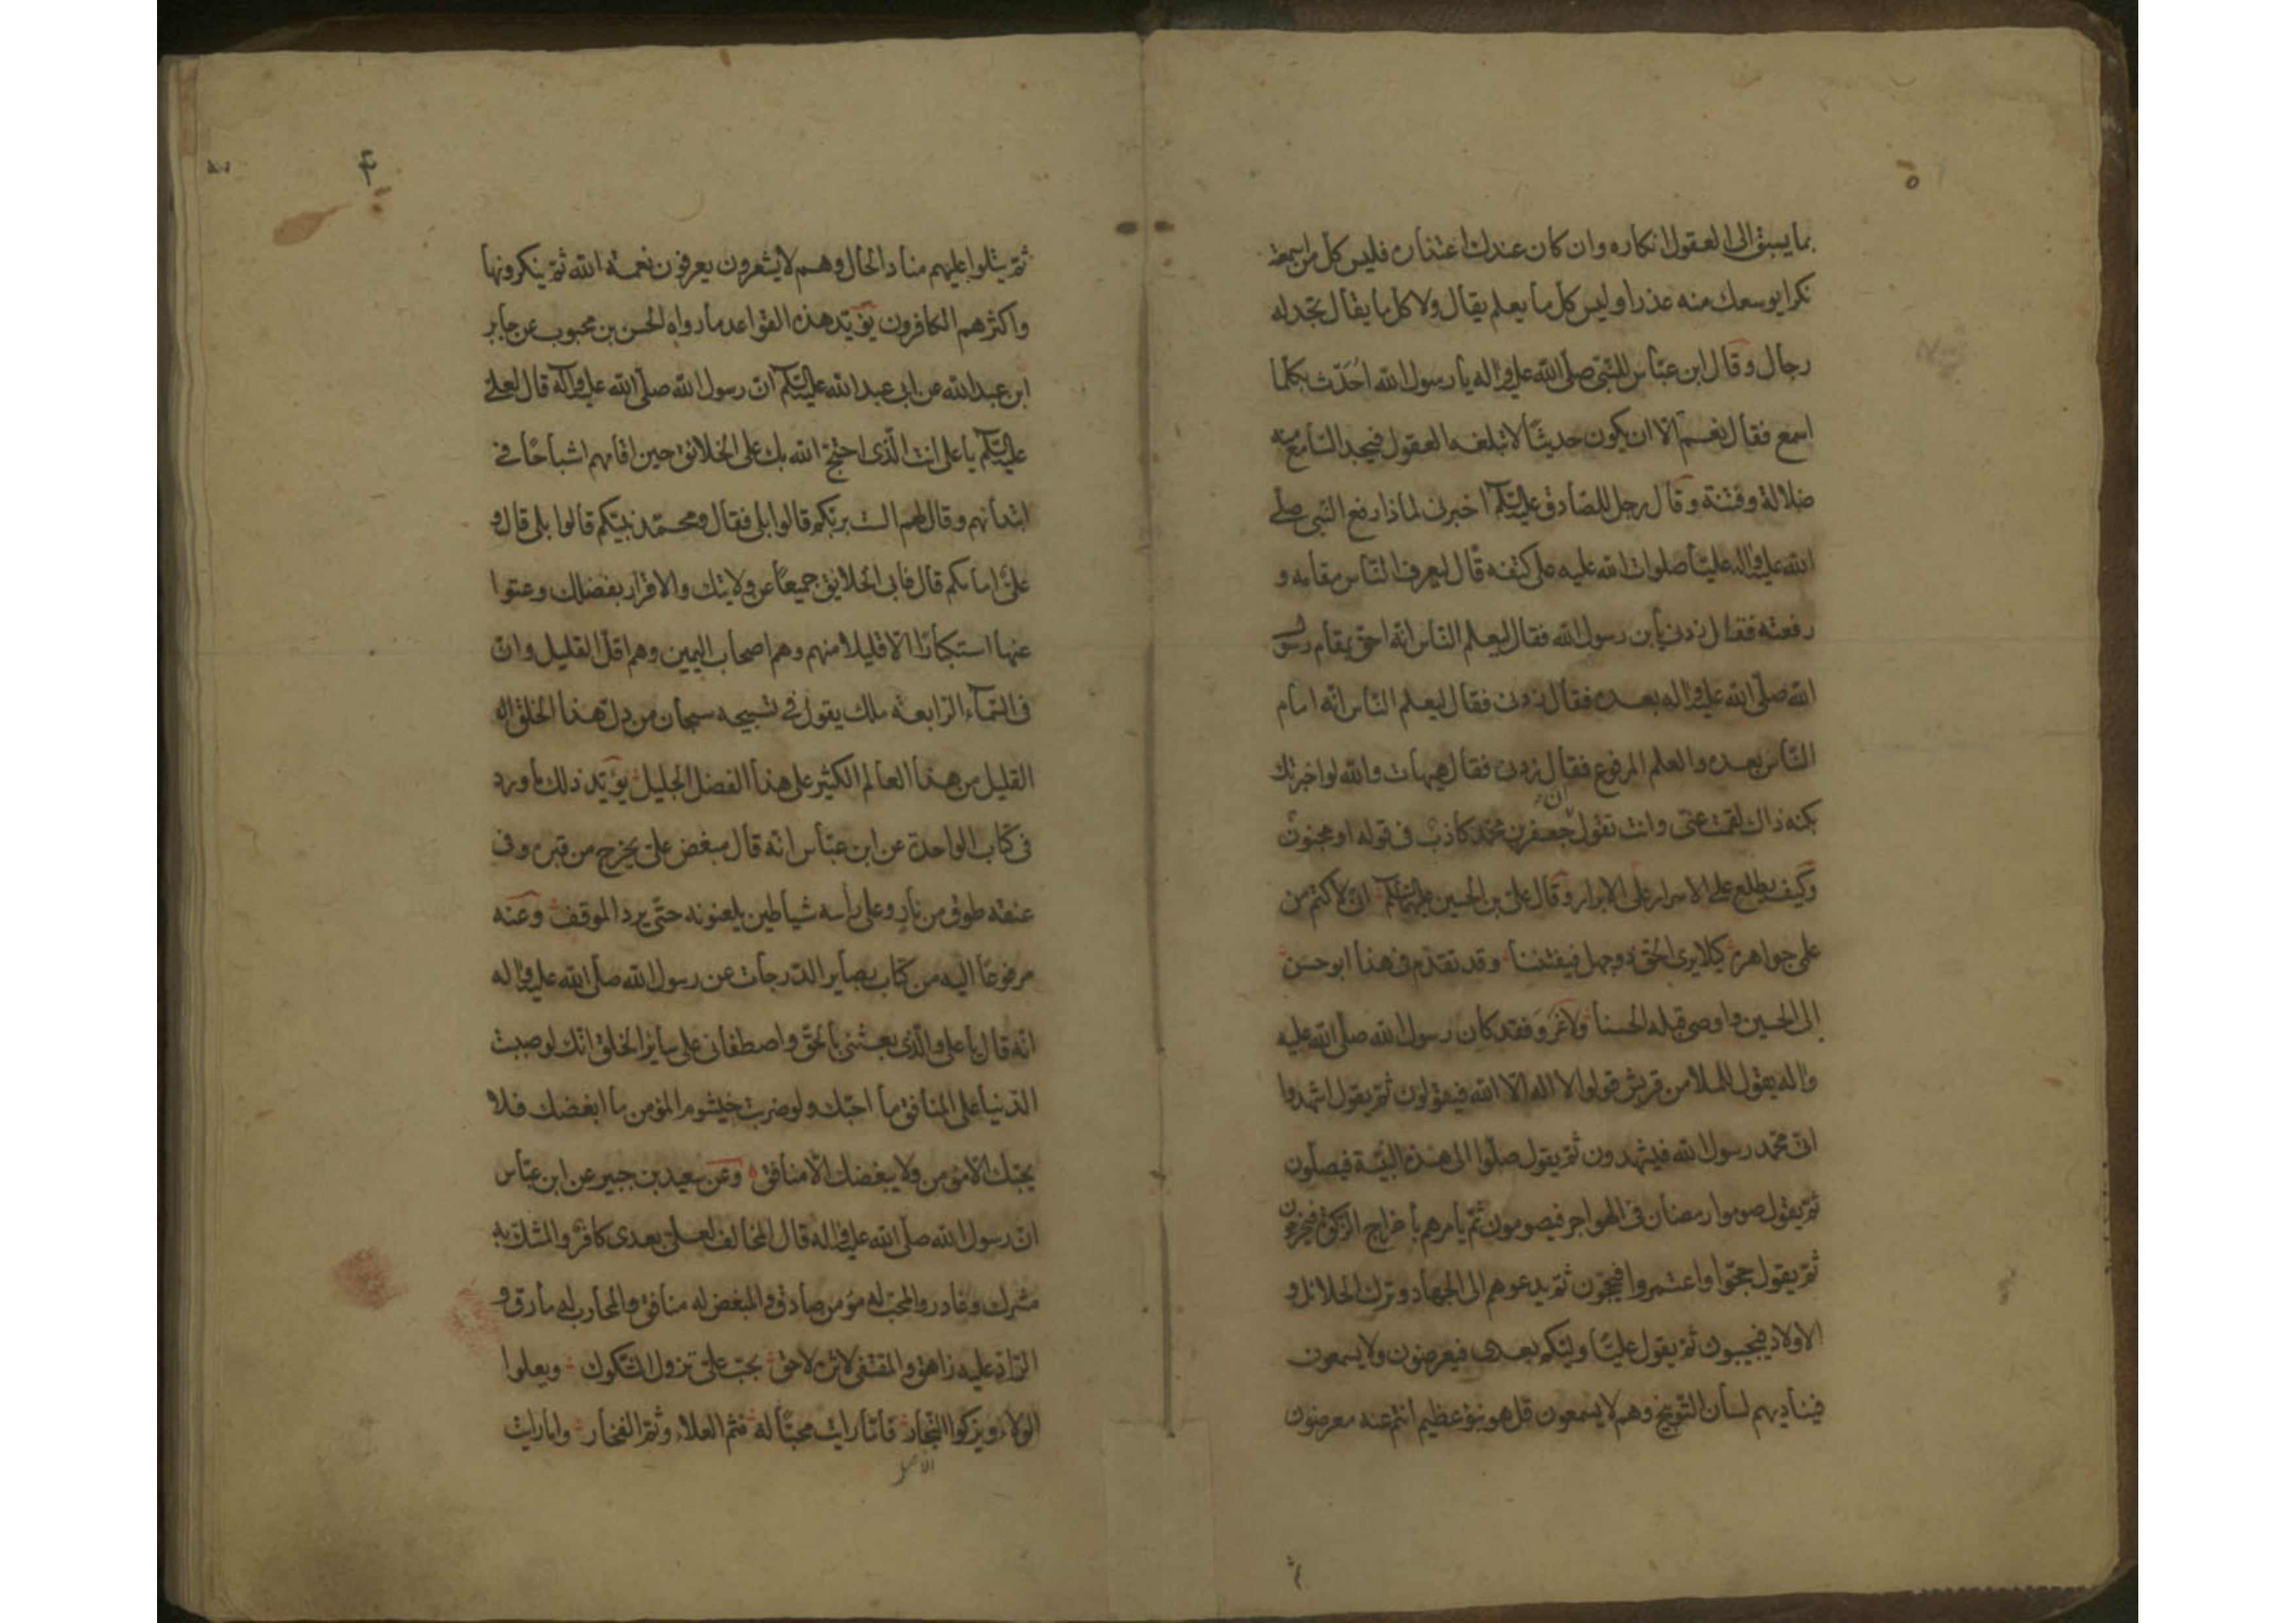 بما يسبق الى العقول انكاره وان كان عندك اعتذاره فليس كل من اسمعته
نكرا يوسعك منه عذرا وليس كل ما يعلم يقال ولا كل ما يقال تجد له
رجال وقال ابن عبّاس للنّبيّ صلّى الله عليه واله يا رسول الله اُحَدّث بكلّما
اسمع فقال نعم الّا ان يكون حديثًا لا تبلغه العقول فيجد السّامع منه
ضلالة وفتنة وقال رجل للصّادق عليه السّلم اخبرنى لماذا رفع النّبى صلّى
الله عليه واله عليّا صلوات الله عليه على كتفه قال ليعرف النّاس مقامه و
رفعته فقال زدنى يابن رسول الله فقال ليعلم النّاس انّه احق بمقام رسول
الله صلّى الله عليه واله بعده فقال زدنى فقال ليعلم النّاس انّه امام
النّاس بعده والعلم المرفوع فقال زدنى فقال هيهات والله لو اخبرتك
بكنه ذاك لقمت عنّى وانت تقول انّ جعفر بن محمّد كاذب فى قوله او مجنون
وكيف يطلع على الاسرار على الابرار وقال علىّ بن الحسين عليهما السّلم انى لاكتم من
علمى جواهره كيلا يرى الحقّ ذو جهل فيفتننا وقد تقدّم فى هذا ابو حسن
الى الحسين واوصى قبله الحسنا ولا غَروَ فقد كان رسول الله صلّى الله عليه
واله يقول للملا من قريش قولوا لا اله الّا الله فيقولون ثمّ يقول اشهدوا
انّ محمّد رسول الله فيشهدون ثمّ يقول صلّوا الى هذه البنيّة فيصلّون
ثمّ يقول صوموا رمضان فى الهواجر فيصومون ثمّ يامرهم باخراج الزّكوة فيخرجون
ثمّ يقول حجّوا واعتمروا فيحجّون ثمّ يدعوهم الى الجهاد وترك الحلائل و
الاولاد فيجيبون ثمّ يقول عليّا وليّكم بعدى فيعرضون ولا يسمعون
فيناديهم لسان التّوبيخ وهم لا يسمعون قل هو نبؤ عظيم انتم عنه معرضون
ثمّ يتلوا عليهم مناد الحال وهم لا يشعرون يعرفون نعمة الله ثمّ ينكرونها
واكثرهم الكافرون يؤيّد هذه القواعد ما رواه الحسن بن محبوب عن جابر
ابن عبد الله عن ابى عبد الله عليه السّلم انّ رسول الله صلّى الله عليه وآله قال لعلىّ
عليه السّلم يا على انت الّذى احتجّ الله بك على الخلائق حين اقامهم اشباحًا فى
ابتدائهم وقال لهم الست بربّكم قالوا بلى فقال ومحمّد نبيّكم قالوا بلى قال و
علىّ امامكم قال فابى الخلايق جميعًا عن ولايتك والاقرار بفضلك وعتوا
عنها استكبارًا الّا قليلا منهم وهم اصحاب اليمين وهم اقلّ القليل وانّ
فى السّماء الرّابعة ملك يقول فى تسبيحه سبحان من دلّ هذا الخلق
القليل من هذا العالم الكثير على هذا الفضل الجليل يؤيّد ذلك ما ورد
فى كتاب الواحدة عن ابن عبّاس انّه قال مبغض علىّ يخرج من قبره وفى
عنقه طوق من نار وعلى رأسه شياطين يلعنونه حتّى يرد الموقف وعنه
مرفوعًا اليه من كتاب بصاير الدّرجات عن رسول الله صلّى الله عليه واله
انّه قال يا على والّذى بعثنى بالحقّ واصطفانى على سائر الخلق انّك لو صببت
الدّنيا على المنافق ما احبّك ولو ضربت خيشوم المؤمن ما ابغضك فلا
يحبّك الّا مؤمن ولا يبغضك الّا منافق وعن سعيد بن جبير عن ابن عبّاس
انّ رسول الله صلّى الله عليه واله قال المخالف لعلىّ بعدى كافر والمشرك به
مشرك وغادر والمحبّ له مؤمن صادق والمبغض له منافق والمحارب له مارق و
الرّادّ عليه زاهق والمقتفى لاثره لاحق بحبّ علىّ تزول الشّكوك ويعلوا
الولاء ويزكوا النّجار فامّا رايت محبّاً له فثم العلاء وثمّ الفخار وامّا رايت
الاصل